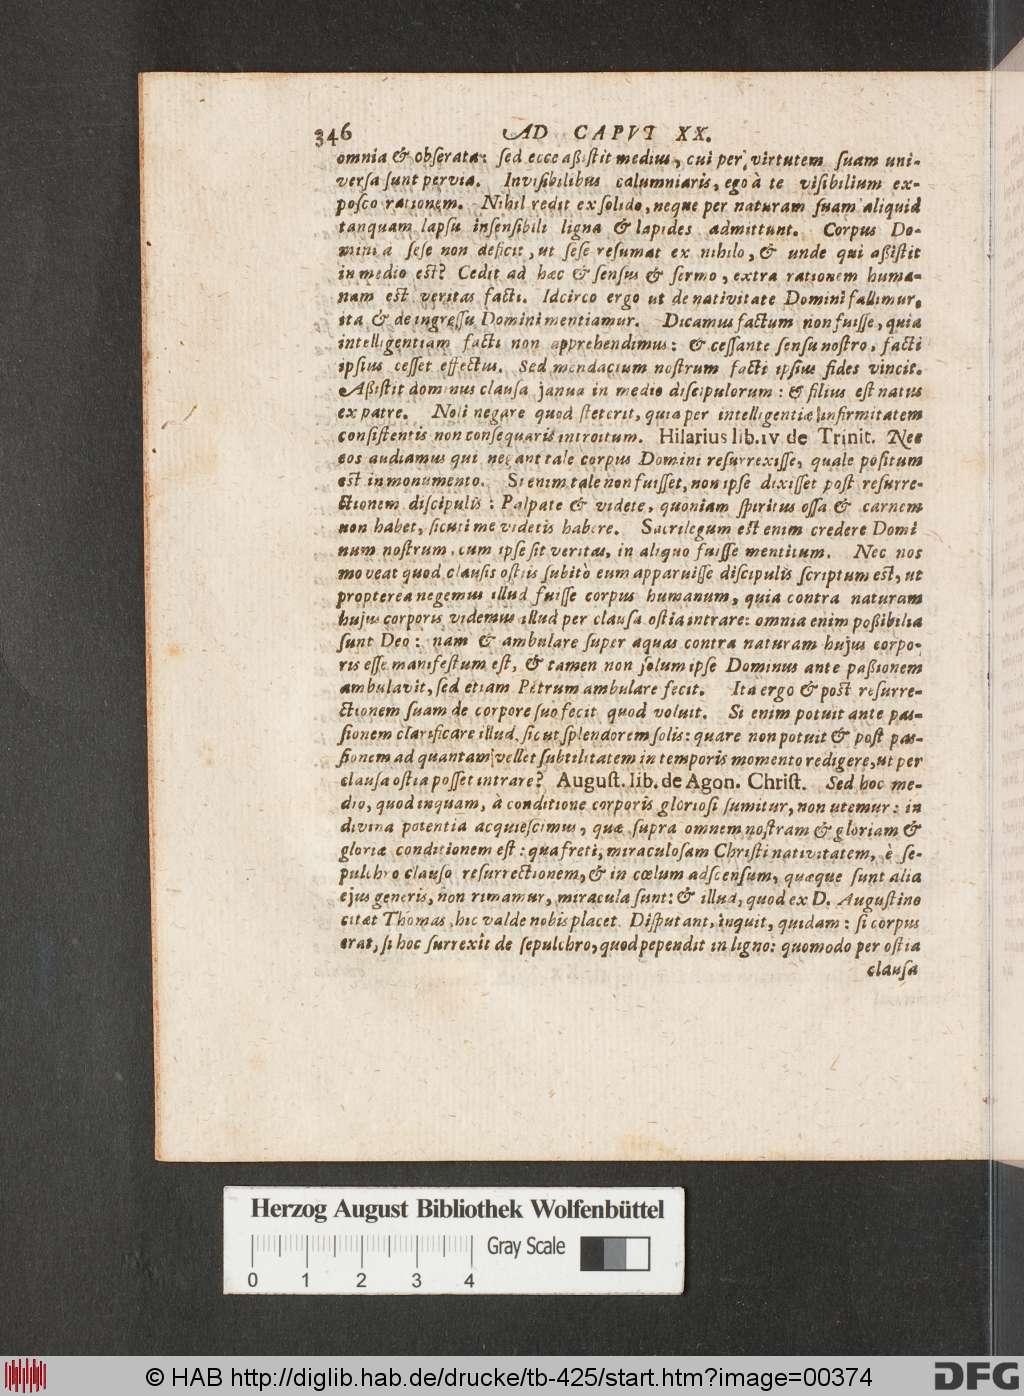 346 AD CAPVT XX.
omnia & obserata: sed ecce aßistit medius, cui per virtutem suam uni-
versa sunt pervia. Invisibilibus calumniaris, ego à te visibilium ex-
posco rationem. Nihil redit ex solido, neque per naturam suam aliquid
tanquam lapsu insensibili ligna & lapides admittunt. Corpus Do-
mini à sese non deficit, ut sese resumat ex nihilo, & unde qui aßistit
in medio est? Cedit ad hæc & sensus & sermo, extra rationem huma-
nam est veritas facti. Idcirco ergo ut de nativitate Domini fallimur,
ita & de ingressu Domini mentiamur. Dicamus factum non fuisse, quia
intelligentiam facti non apprehendimus: & cessante sensu nostro, facti
ipsius cesset effectus. Sed mendacium nostrum facti ipsius fides vincit.
Aßistit dominus clausa janua in medio discipulorum: & filius est natus
ex patre. Noli negare quod steterit, quia per intelligentiæ infirmitatem
consistentis non consequaris introitum. Hilarius lib. iv de Trinit. Nec
eos audiamus qui negant tale corpus Domini resurrexisse, quale positum
est in monumento. Si enim tale non fuisset, non ipse dixisset post resurre-
ctionem discipulis: Palpate & videte, quoniam spiritus ossa & carnem
non habet, sicuti me videtis habere. Sacrilegum est enim credere Domi
num nostrum, cum ipse sit veritas, in aliquo fuisse mentitum. Nec nos
moveat quod clausis ostiis subitò eum apparuisse discipulis scriptum est, ut
propterea negemus illud fuisse corpus humanum, quia contra naturam
hujus corporis videmus illud per clausa ostia intrare: omnia enim poßibilia
sunt Deo: nam & ambulare super aquas contra naturam hujus corpo-
ris esse manifestum est, & tamen non solum ipse Dominus ante paßionem
ambulavit, sed etiam Petrum ambulare fecit. Ita ergo & post resurre-
ctionem suam de corpore suo fecit quod voluit. Si enim potuit ante pas-
sionem clarificare illud, sicut splendorem solis: quare non potuit & post pas-
sionem ad quantam vellet subtilitatem in temporis momento redigere, ut per
clausa ostia posset intrare? August. lib. de Agon. Christ. Sed hoc me-
dio, quod inquam, à conditione corporis gloriosi sumitur, non utemur: in
divina potentia acquiescimus, quæ supra omnem nostram & gloriam &
gloriæ conditionem est: qua freti, miraculosam Christi nativitatem, è se-
pulchro clauso resurrectionem, & in cœlum adscensum, quæque sunt alia
ejus generis, non rimamur, miracula sunt: & illud, quod ex D. Augustino
citat Thomas, hic valde nobis placet. Disputant, inquit, quidam: si corpus
erat, si hoc surrexit de sepulchro, quod pependit in ligno: quomodo per ostia
clausa
Herzog August Bibliothek Wolfenbüttel
0 1 2 3 4 Gray Scale
© HAB http://diglib.hab.de/drucke/tb-425/start.htm?image=00374 DFG